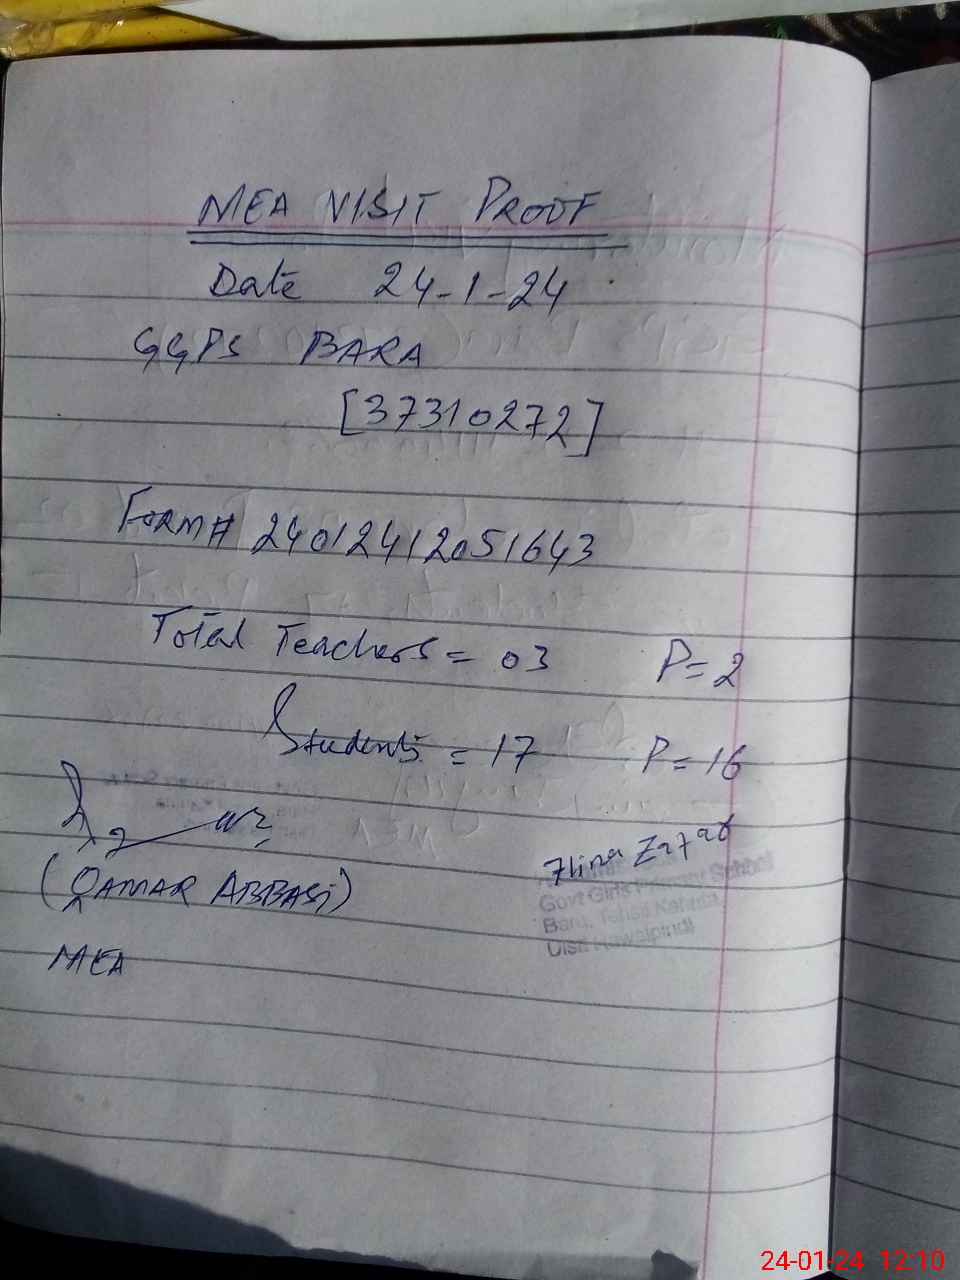 MEA VISIT PROOF
Date 24-1-24
GGPS BARA
[37310272]
Form# 24012412051643
Total Teachers = 03 P=2
Students = 17 P=16
(QAMAR ABBASI)
MEA
Zafar
Govt Girls Primary School
Bara, Tehsil Kahuta
Distt Rawalpindi
24-01-24 12:10